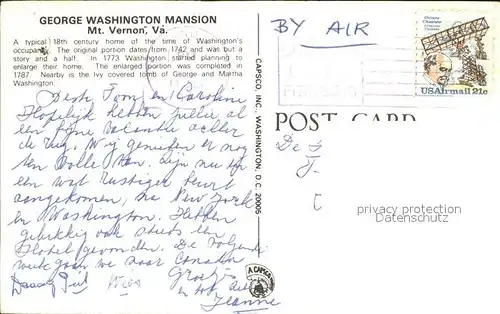 GEORGE WASHINGTON MANSION
Mt. Vernon, Va.
A typical 18th century home of the time of Washington's
occupancy. The original portion dates from 1742 and was but a
story and a half. In 1773 Washington started planning to
enlarge their home. The enlarged portion was completed in
1787. Nearby is the Ivy covered tomb of George and Martha
Washington.
BY AIR
Octave Chanute
USAirmail 21c
CAPSCO, INC., WASHINGTON, D.C. 20005
POST CARD
Beste Toon en Caroline
Hopelijk hebben jullie al
een fijne vakantie achter
de rug. Wij genieten er nog
ten volle van. Zijn nu in
een wat rustiger buurt
aangekomen, na New York
en Washington. Hebben
gelukkig ook steeds een
Hotel gevonden. De volgende
week gaan we naar Canada
Groetjes
en tot
Jeanne
De
J.
privacy protection
www.ansichtskarten-center.de
A CAPSCO